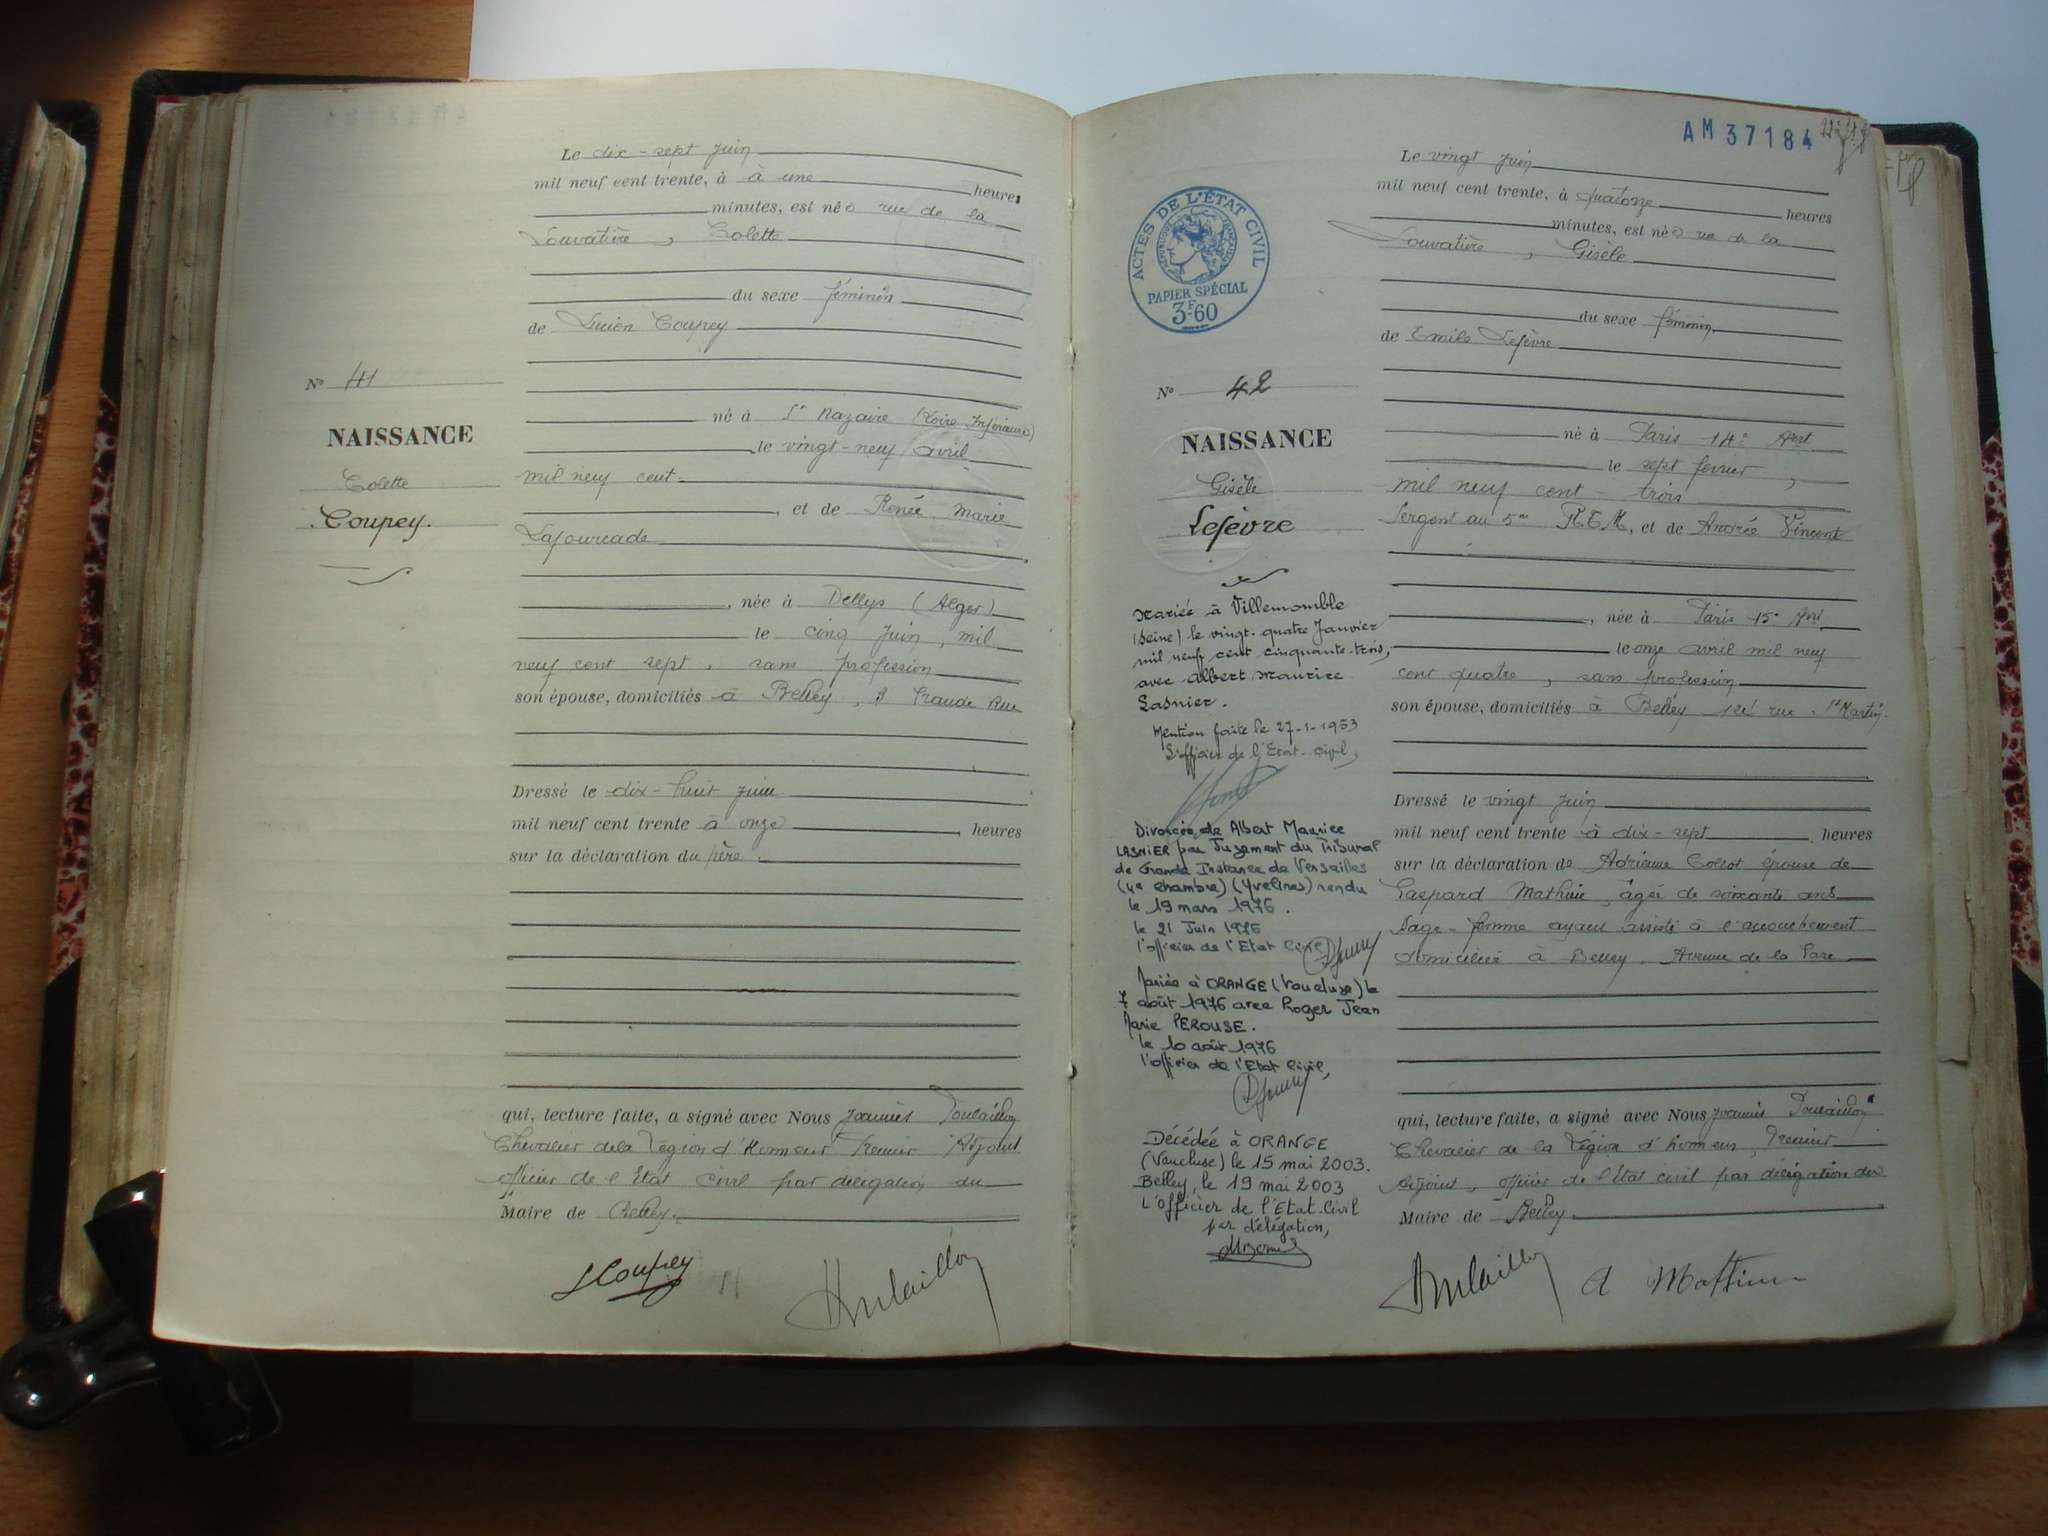 Le dix-sept juin
mil neuf cent trente, à à une heures
minutes, est née rue de la
Louvatière, Colette
du sexe féminin
de Lucien Coupey
né à St Nazaire (Loire Inférieure)
le vingt-neuf avril
mil neuf cent
, et de Renée Marie
Lafourcade
, née à Dellys (Alger)
le cinq juin, mil
neuf cent sept, sans profession
son épouse, domiciliés à Belley, 8 Grande Rue
Dressé le dix-huit juin
mil neuf cent trente à onze, heures
sur la déclaration du père.
qui, lecture faite, a signé avec Nous Joannès Poulaillon
Chevalier de la Légion d'Honneur Premier Adjoint
officier de l'Etat Civil par délégation du
Maire de Belley.
LCoupey
Poulaillon
No 41
NAISSANCE
Colette
Coupey.
AM 37184
Le vingt juin
mil neuf cent trente, à quatorze heures
minutes, est née rue de la
Louvatière, Gisèle
du sexe féminin
de Emile Lefèvre
né à Paris 14e Arrt
le sept fevrier,
mil neuf cent trois
Sergent au 5me R.T.M, et de Andrée Vincent
, née à Paris 15e Arrt
le onze avril mil neuf
cent quatre, sans profession
son épouse, domiciliés à Belley rue St Martin.
Dressé le vingt juin
mil neuf cent trente à dix-sept, heures
sur la déclaration de Adrienne Collot épouse de
Gaspard Mathieu, âgée de soixante ans
Sage-femme ayant assisté à l'accouchement
domiciliée à Belley. Avenue de la Gare
qui, lecture faite, a signé avec Nous Joannès Poulaillon
Chevalier de la Légion d'honneur, Premier
Adjoint, officier de l'Etat civil par délégation du
Maire de Belley.
Poulaillon A Mathieu
ACTES DE L'ÉTAT CIVIL
RÉPUBLIQUE FRANÇAISE
PAPIER SPÉCIAL
3F60
No 42
NAISSANCE
Gisèle
Lefèvre
Mariée à Villemomble
(Seine) le vingt-quatre Janvier
mil neuf cent cinquante-trois,
avec Albert Maurice
Lasnier.
Mention faite le 27-1-1953
L'officier de l'Etat-Civil,
Divorcée de Albert Maurice
LASNIER par Jugement du Tribunal
de Grande Instance de Versailles
(4e chambre) (Yvelines) rendu
le 19 mars 1976.
le 21 Juin 1976
l'officier de l'Etat Civil
Mariée à ORANGE (Vaucluse) le
7 août 1976 avec Roger Jean
Marie PEROUSE.
le 10 août 1976
l'officier de l'Etat Civil,
Décédée à ORANGE
(Vaucluse) le 15 mai 2003.
Belley, le 19 mai 2003
L'Officier de l'Etat-Civil
par délégation,